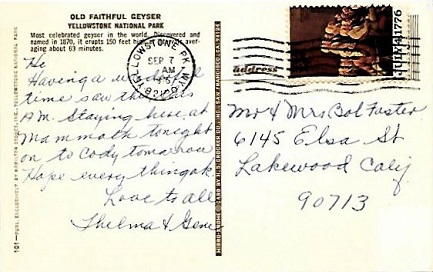 OLD FAITHFUL GEYSER
YELLOWSTONE NATIONAL PARK
Most celebrated geyser in the world. Discovered and
named in 1870, it erupts 150 feet high, aver-
aging about 63 minutes.
YELLOWSTONE PK. WYO
SEP 7
AM
82190
JULY 4, 1776
address
Hi
Having a wonderful
time saw this
A.M. Staying here at
Mammoth tonight
on to Cody tomorrow
Hope everything ok
Love to all
Thelma & Gene
Mr & Mrs Bob Foster
6145 Elsa St
Lakewood Calif
90713